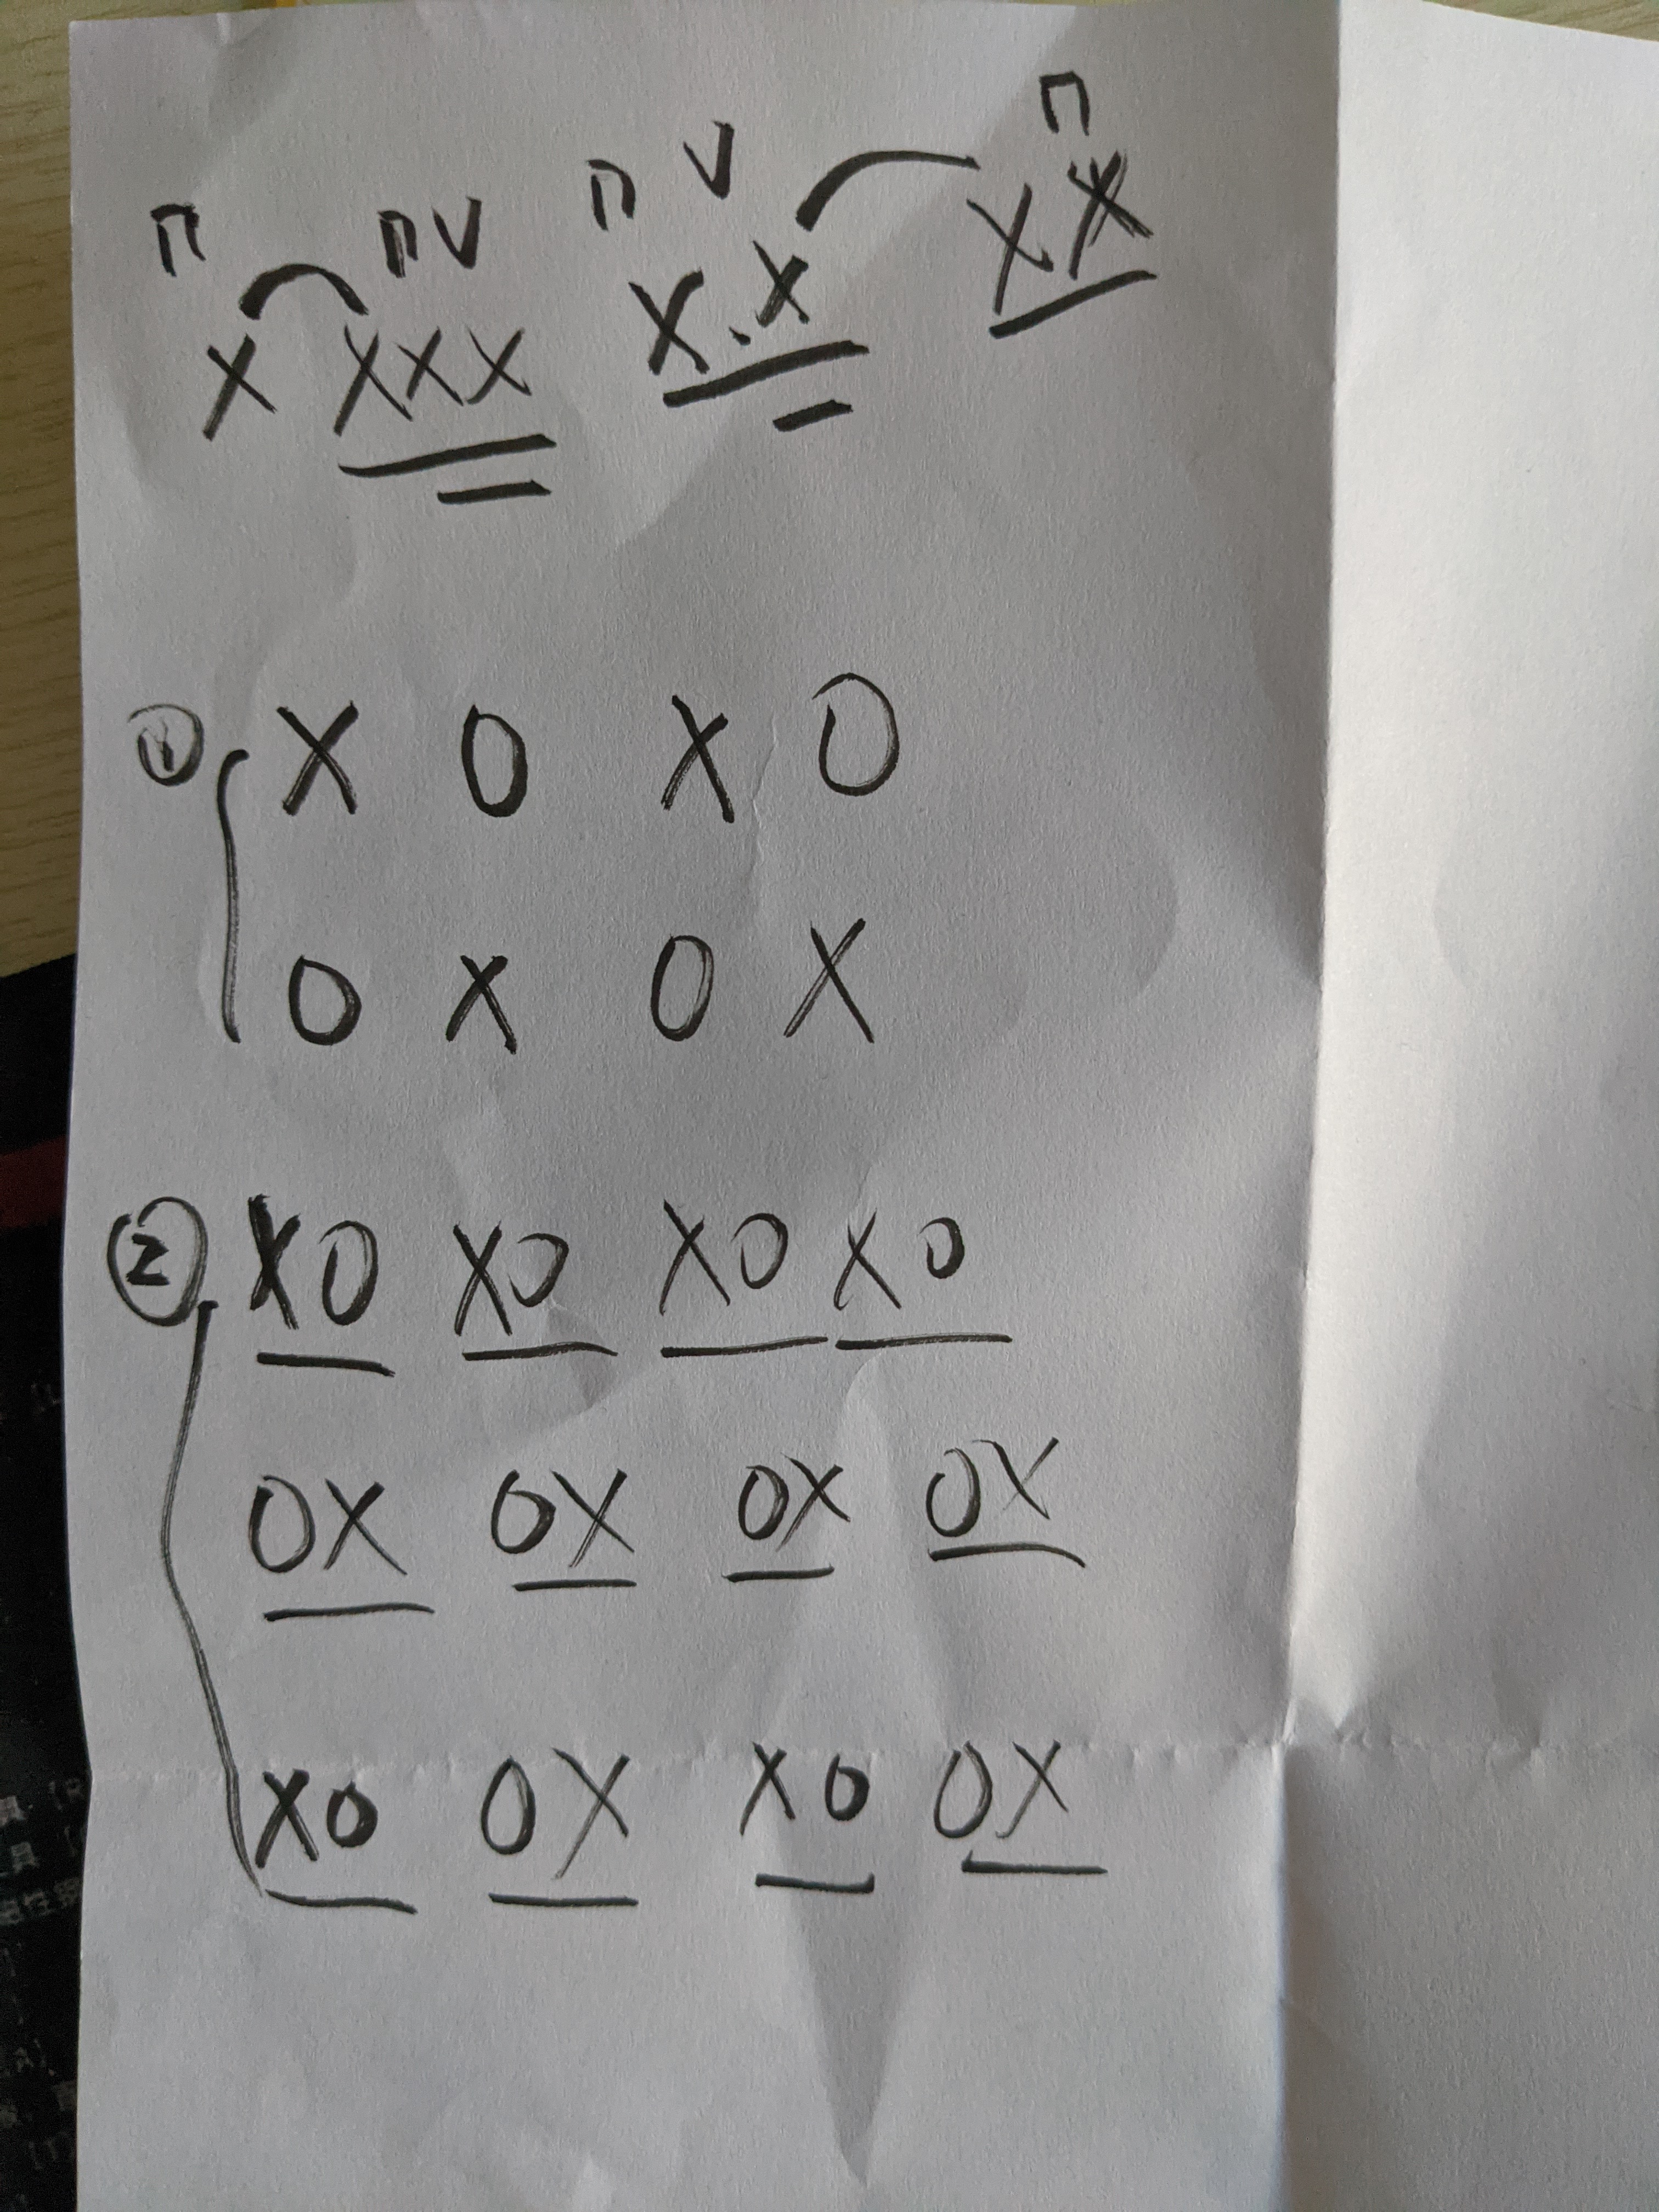 п пV п V п
X XXX X.X XX
① X O X O
O X O X
② XO XO XO XO
OX OX OX OX
XO OX XO OX